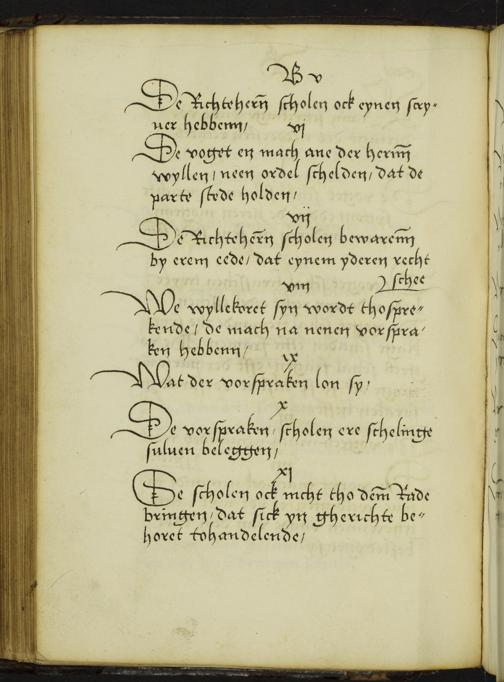 B v
De Richteherñ scholen ock eynen scry-
uer hebbenn/
vi
De voget en mach ane der hernn
wyllen/ neen ordel schelden/ dat de
parte stede holden/
vij
De Richteherñ scholen bewarenn
by erem eede/ dat eynem yderen recht
schee
viij
We wyllekoret syn wordt thospre-
kende/ de mach na nenen vorspra-
ken hebbenn/
ix
Wat der vorspraken lon sy/
x
De vorspraken/ scholen ere schelinge
suluen beleggen/
xi
Se scholen ock nicht tho dem Rade
bringen/ dat sick yn gherichte be-
horet tohandelende/